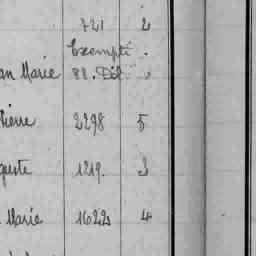 721 2
Exempté.
an Marie 82. Dél
Pierre 2298 5
guste 1219. 3
Marie 1622 4